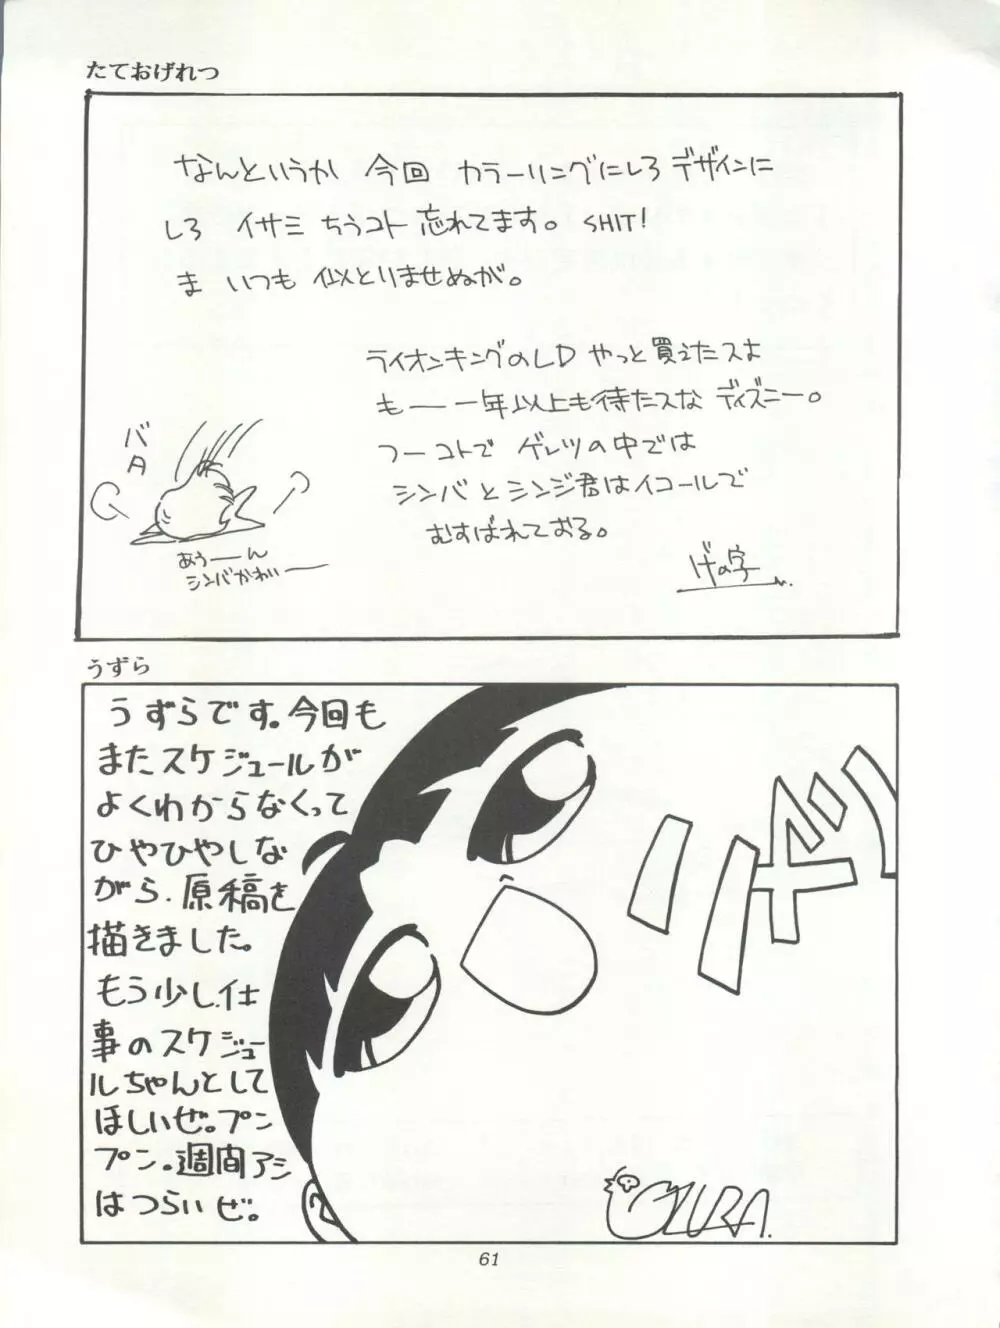 たておげれつ
なんというか 今回 カラーリングにしろ デザインに
しろ イサミ ちうコト 忘れてます。 SHIT!
ま いつも 似とりませぬが。
ライオンキングのLD やっと買えたスよ
も── 一年以上も待たスな ディズニー。
つーコトで ゲレツの中では
シンバとシンジ君はイコールで
むすばれておる。
バタ
あう──ん
シンバかわい──
げの字
うずら
うずらです。今回も
またスケジュールが
よくわからなくって
ひやひやしな
がら、原稿を
描きました。
もう少し、仕
事のスケジュー
ルちゃんとして
ほしいぜ。プン
プン。週間アシ
はつらいぜ。
ジャン
UZURA.
61